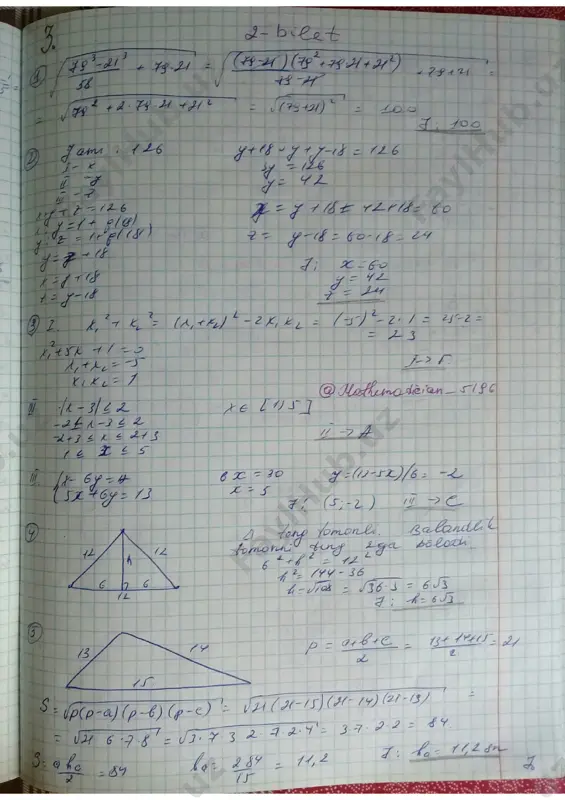 3.
2-bilet
① √(79³-21³/58 + 79·21) = √((79-21)(79²+79·21+21²)/79-21 + 79·21) =
= √(79²+2·79·21+21²) = √(79+21)² = 100
J: 100
② Jami: 126
y+18+y+y-18=126
3y=126
II - y
y=42
x+y+z=126
y+18=42+18=60
y=z+18
z= y-18=60-18=24
x=y+18
z=y-18
J: x=60
y=42
z=24
③ I. x₁²+x₂²=(x₁+x₂)²-2x₁x₂=(-5)²-2·1=25-2=
=23
x²+5x+1=0
x₁+x₂=-5
x₁x₂=1
@Mathematician_5196
II |x-3|≤2
x∈[1;5]
-2≤x-3≤2
-2+3≤x≤2+3
II→A
1≤x≤5
III. {x-6y=17
5x+6y=13
6x=30
x=5
y=(13-5x)/6=-2
J: (5;-2)
III→C
④
12
h
12
6
6
12
Δ teng tomonli. Balandlik
tomonni teng 2ga boladi.
6²+h²=12²
h²=144-36
h=√108=√36·3=6√3
J: h=6√3
⑤
13
14
15
P=a+b+c/2=13+14+15/2=21
S=√p(p-a)(p-b)(p-c)=√21(21-15)(21-14)(21-13)=
=√21·6·7·8=√3·7·3·2·7·2·4=3·7·2·2=84
S=aha/2=84
ha=2·84/15=11,2
J: ha=11,2 sm
FaylHub.uz